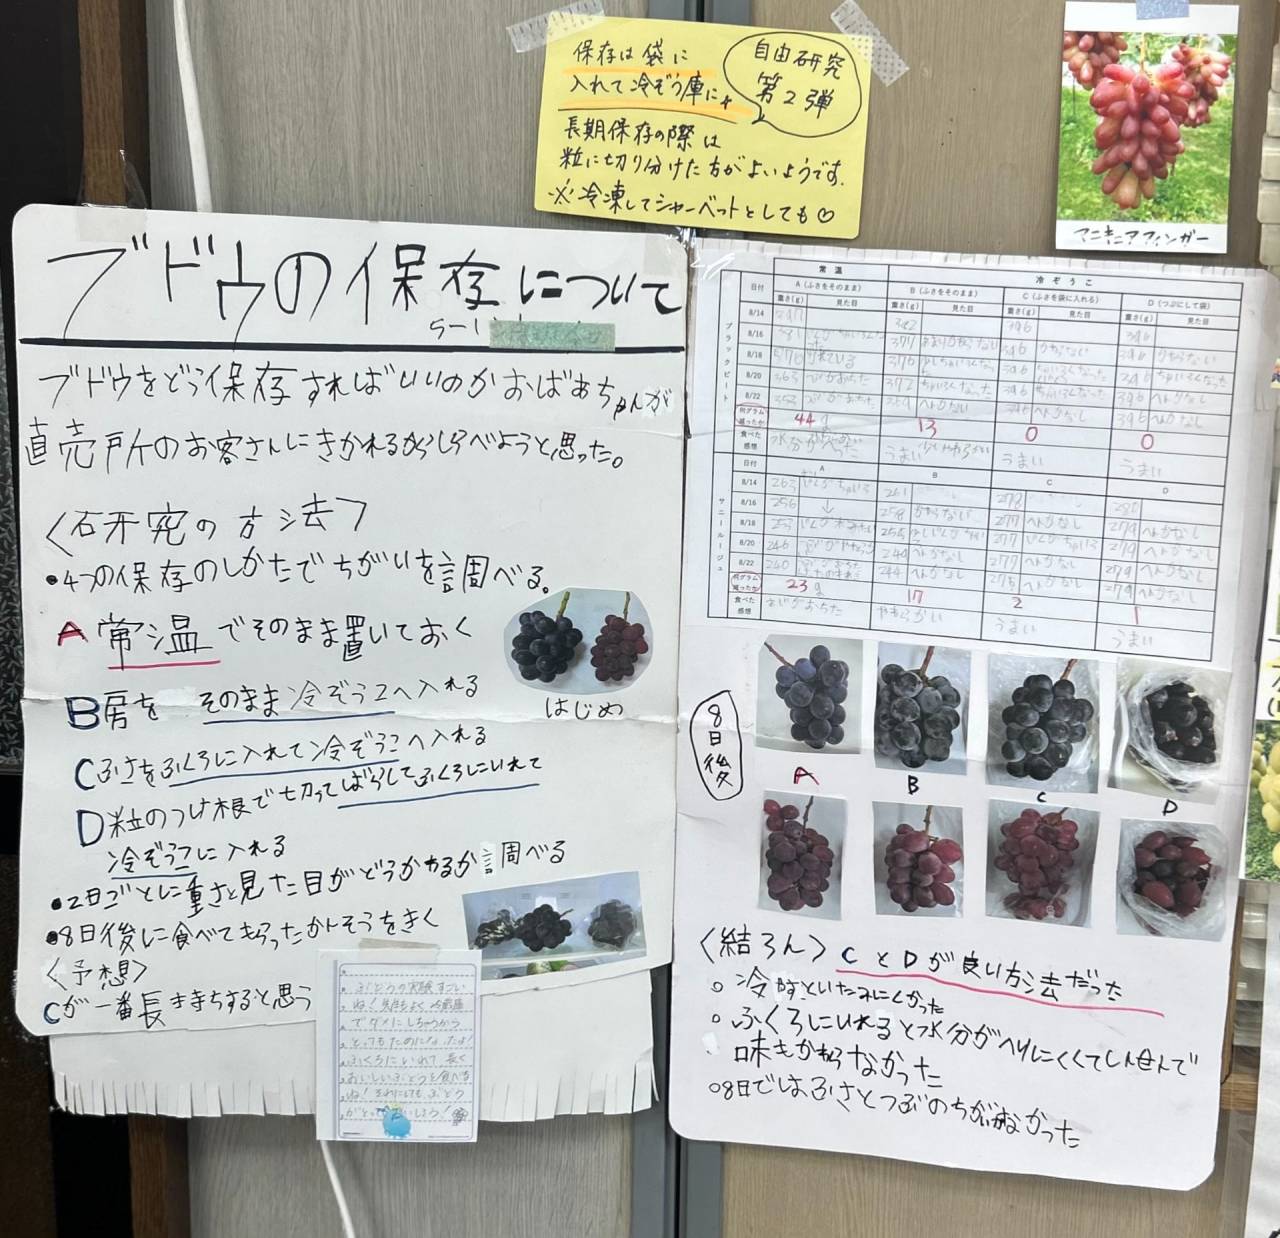 保存は袋に
入れて冷ぞう庫に
自由研究
第2弾
長期保存の際は
粒に切り分けた方がよいようです.
※冷凍してシャーベットとしても♡
マニキュアフィンガー
ブドウの保存について
ブドウをどう保存すればいいのかおばあちゃんが
直売所のお客さんにきかれるからしらべようと思った。
〈研究の方法〉
・4つの保存のしかたでちがいを調べる。
A 常温でそのまま置いておく
はじめ
B房をそのまま冷ぞうこへ入れる
Cふさをふくろに入れて冷ぞうこへ入れる
D粒のつけ根で切ってばらしてふくろにいれて
冷ぞうこに入れる
・2日ごとに重さと見た目がどうかわるか調べる
・8日後に食べてもらったかんそうをきく
〈予想〉
Cが一番長き持ちすると思う
ぶどうの実験すごい
でダメにしちゃうから
とってもためになったよ!
ふくろにいれて長く
おいしいぶどうを食べる
常温 冷ぞうこ
日付 A(ふさをそのまま) B(ふさをそのまま) C(ふさを袋に入れる) D(つぶにして袋)
重さ(g) 見た目 重さ(g) 見た目 重さ(g) 見た目 重さ(g) 見た目
ブラックビート
8/14 382 346 396
8/16 381 377 346 かわらない 396 かわらない
8/18 370 376 346 396
8/20 363 372 346 396
8/22 369 346 へんかなし 396 へんかなし
何グラム減ったか 44g 13 0 0
食べた感想 うまい うまい うまい
サニールージュ
日付 A B C D
8/14 263 261 278 280
8/16 256 ↓ 258 かわらない 277 へんかなし 279 へんかなし
8/18 253 255 277 279 へんかなし
8/20 246 249 へんかなし 277 へんかなし 279 へんかなし
8/22 240 244 へんかなし 276 へんかなし 279 へんかなし
何グラム減ったか 23g 17 2 1
食べた感想 あじがおちた やわらかい うまい うまい
8日後
A B C D
〈結ろん〉CとDが良い方法だった
○冷やすといたみにくかった
○ふくろにいれると水分がへりにくくてしんせんで
味もかわらなかった
○8日ではふさとつぶのちがいがなかった